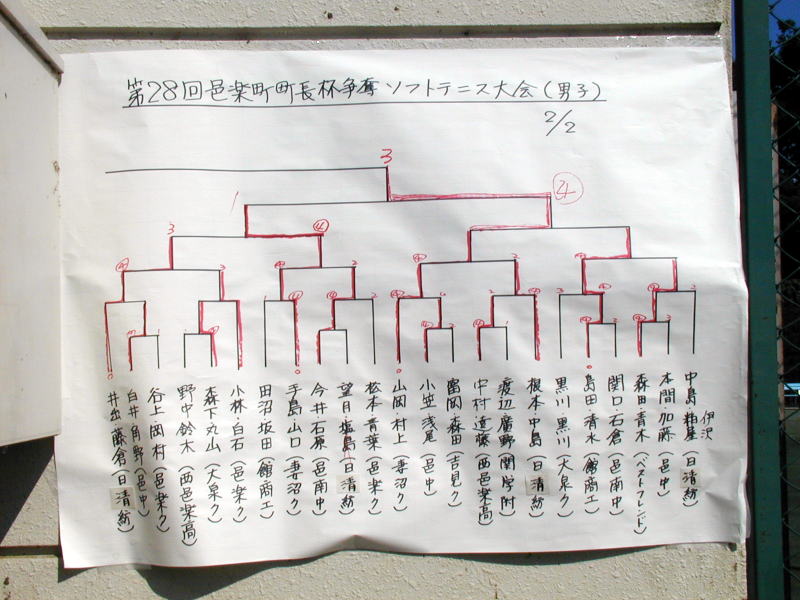 第28回邑楽町町長杯争奪ソフトテニス大会(男子)
2/2
3
1
④
3
④
井出・藤倉(日清紡)
白井・角野(邑中)
谷上・岡村(邑楽ク)
野中・鈴木(西邑楽高)
森下・丸山(大泉ク)
小林・白石(邑楽ク)
田沼・坂田(館商工)
手島・山口(妻沼ク)
今井・石原(邑南中)
望月・塩島(日清紡)
松本・青葉(邑楽ク)
山岡・村上(妻沼ク)
小笠・浅尾(邑中)
富岡・森田(吉見ク)
中村・遠藤(西邑楽高)
渡辺・廣野(関学附)
根本・中島(日清紡)
黒川・黒川(大泉ク)
島田・清水(館商工)
関口・石倉(邑南中)
森田・青木(ベストフレンド)
本間・加藤(邑中)
中島・粕屋(日清紡)
伊沢